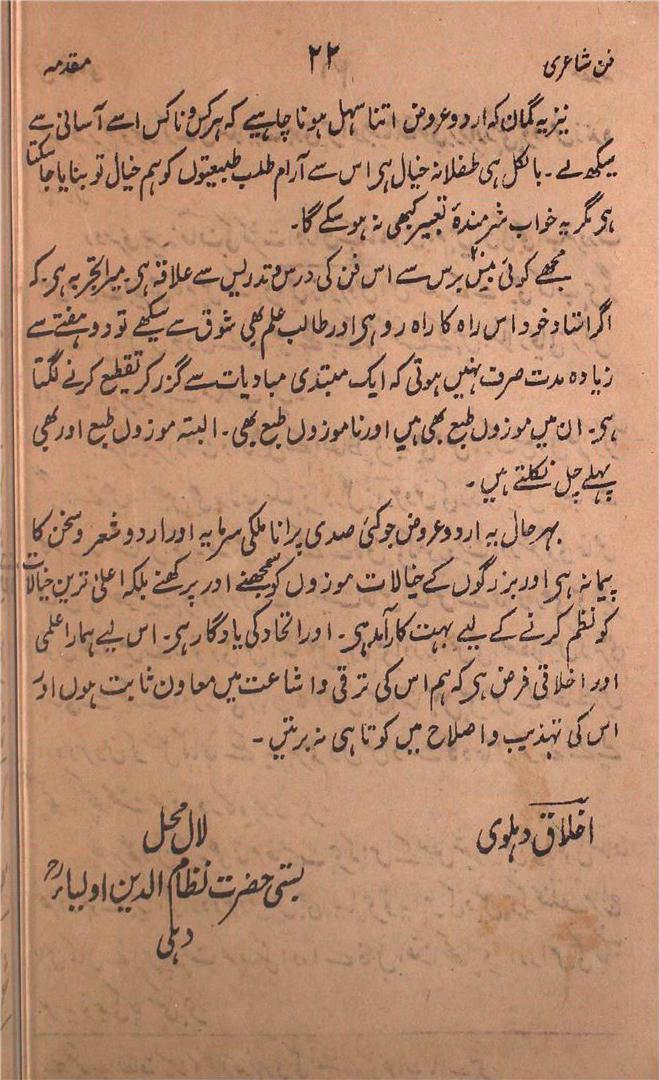 فن شاعری ۲۲ مقدمہ
نیز یہ گمان کہ اردو عروض اتنا سہل ہونا چاہیے کہ ہر کس و ناکس اسے آسانی سے
سیکھ لے۔ بالکل ہی طفلانہ خیال ہی اس سے آرام طلب طبیعتوں کو ہم خیال تو بنایا جا سکتا
ہی مگر یہ خواب شرمندۂ تعبیر کبھی نہ ہو سکے گا۔
مجھے کوئی بیس ۲۰ برس سے اس فن کی درس و تدریس سے علاقہ ہی۔ میرا تجربہ ہی۔ کہ
اگر استاد خود اس راہ کا راہ رو ہی اور طالب علم بھی شوق سے سیکھے تو دو ہفتے سے
زیادہ مدت صرف نہیں ہوتی کہ ایک مبتدی مبادیات سے گزر کر تقطیع کرنے لگتا
ہی۔ ان میں موزوں طبع بھی ہیں اور ناموزوں طبع بھی۔ البتہ موزوں طبع اور بھی
پہلے چل نکلتے ہیں۔
بہر حال یہ اردو عروض جو کئی صدی پرانا ملکی سرمایہ اور اردو شعر و سخن کا
پیمانہ ہی اور بزرگوں کے خیالات موزوں کو سمجھنے اور پرکھنے بلکہ اعلیٰ ترین خیالات
کو نظم کرنے کے لیے بہت کارآمد ہی۔ اور اتحاد کی یادگار ہی۔ اس لیے ہمارا علمی
اور اخلاقی فرض ہی کہ ہم اس کی ترقی و اشاعت میں معاون ثابت ہوں اور
اس کی تہذیب و اصلاح میں کوتاہی نہ برتیں۔
اخلاق دہلوی
لال محل
بستی حضرت نظام الدین اولیاؒ
دہلی